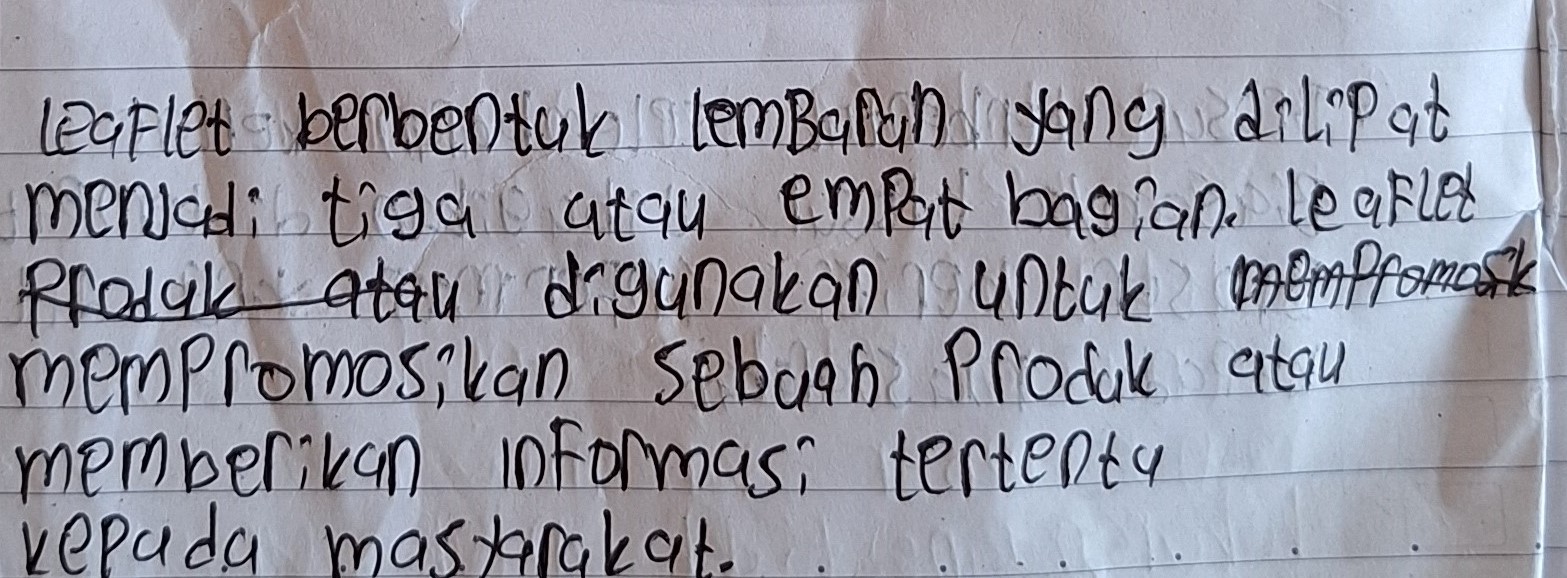 leaflet berbentuk lembaran yang dilipat
menjadi tiga atau empat bagian. leaflet
Produk atau digunakan untuk mempromosik
mempromosikan sebuah Produk atau
memberikan informasi tertentu
kepada masyarakat.